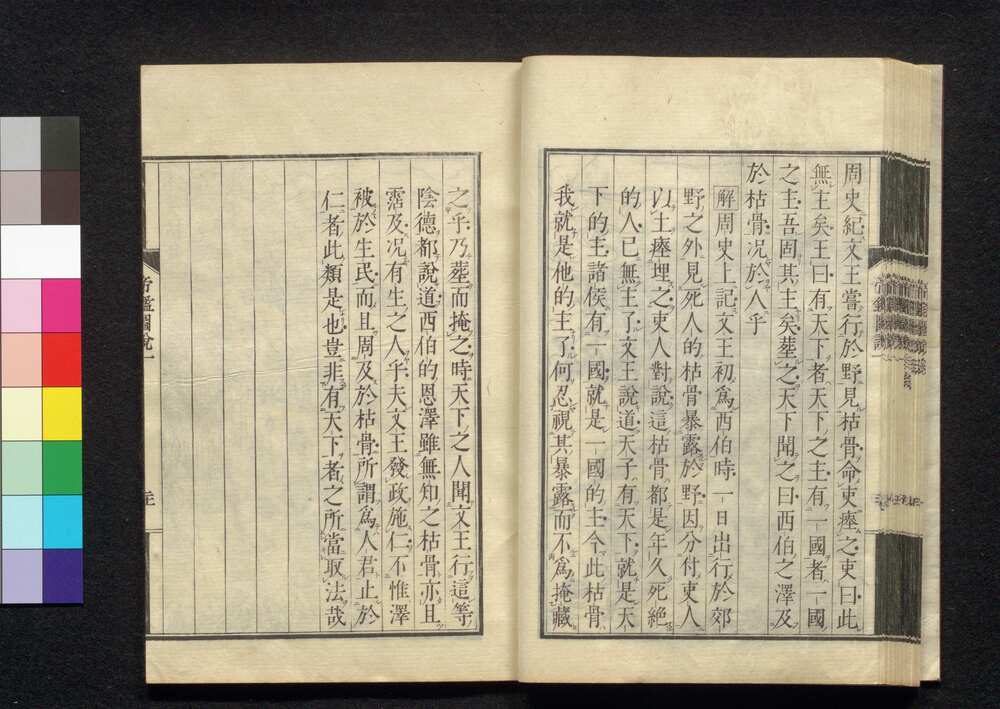 周史紀文王嘗行於野見枯骨命吏瘞之吏曰此
無主矣王曰有天下者天下之主有一國者一國
之主吾固其主矣葬之天下聞之曰西伯之澤及
於枯骨况於人乎
解周史上記文王初爲西伯時一日出行於郊
野之外見死人的枯骨暴露於野因分付吏人
以土瘞埋之吏人對說這枯骨都是年久死絶
的人已無主了文王說道天子有天下就是天
下的主諸侯有一國就是一國的主今此枯骨
我就是他的主了何忍視其暴露而不爲掩藏
之乎乃葬而掩之時天下之人聞文王行這等
陰德都說道西伯的恩澤雖無知之枯骨亦且
霑及况有生之人乎夫文王發政施仁不惟澤
被於生民而且周及於枯骨所謂爲人君止於
仁者此類是也豈非有天下者之所當取法哉
帝鑑圖說一